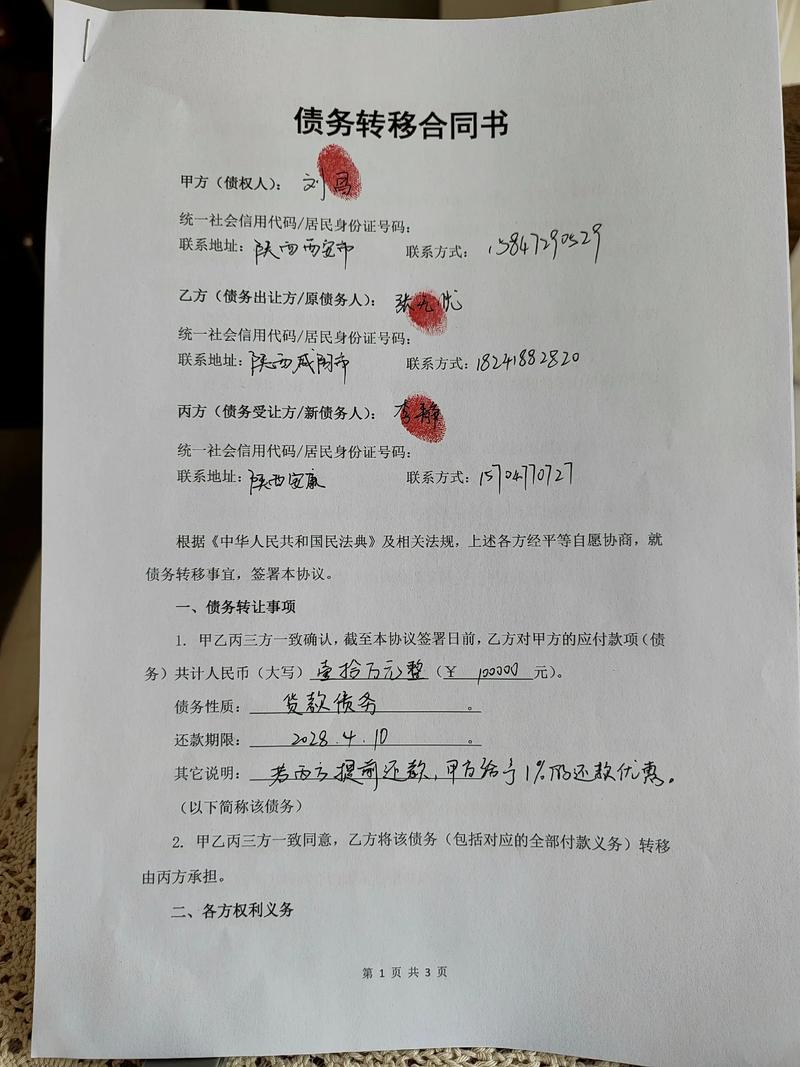 债务转移合同书
甲方（债权人）： 刘昌
统一社会信用代码/居民身份证号码：
联系地址：陕西西安市 联系方式：15847290529
乙方（债务出让方/原债务人）： 张无忧
统一社会信用代码/居民身份证号码：
联系地址：陕西咸阳市 联系方式：18241882820
丙方（债务受让方/新债务人）： 李静
统一社会信用代码/居民身份证号码：
联系地址：陕西安康 联系方式：15704770727
根据《中华人民共和国民法典》及相关法规，上述各方经平等自愿协商，就
债务转移事宜，签署本协议。
一、债务转让事项
1. 甲乙丙三方一致确认，截至本协议签署日前，乙方对甲方的应付款项（债
务）共计人民币（大写）壹拾万元整（￥ 100000 元）。
债务性质： 货款债务 。
还款期限： 2028.4.10 。
其它说明： 若丙方提前还款，甲方给予1%的还款优惠。
（以下简称该债务）
2. 甲乙丙三方一致同意，乙方将该债务（包括对应的全部付款义务）转移
由丙方承担。
二、各方权利义务
第 1 页 共 3 页